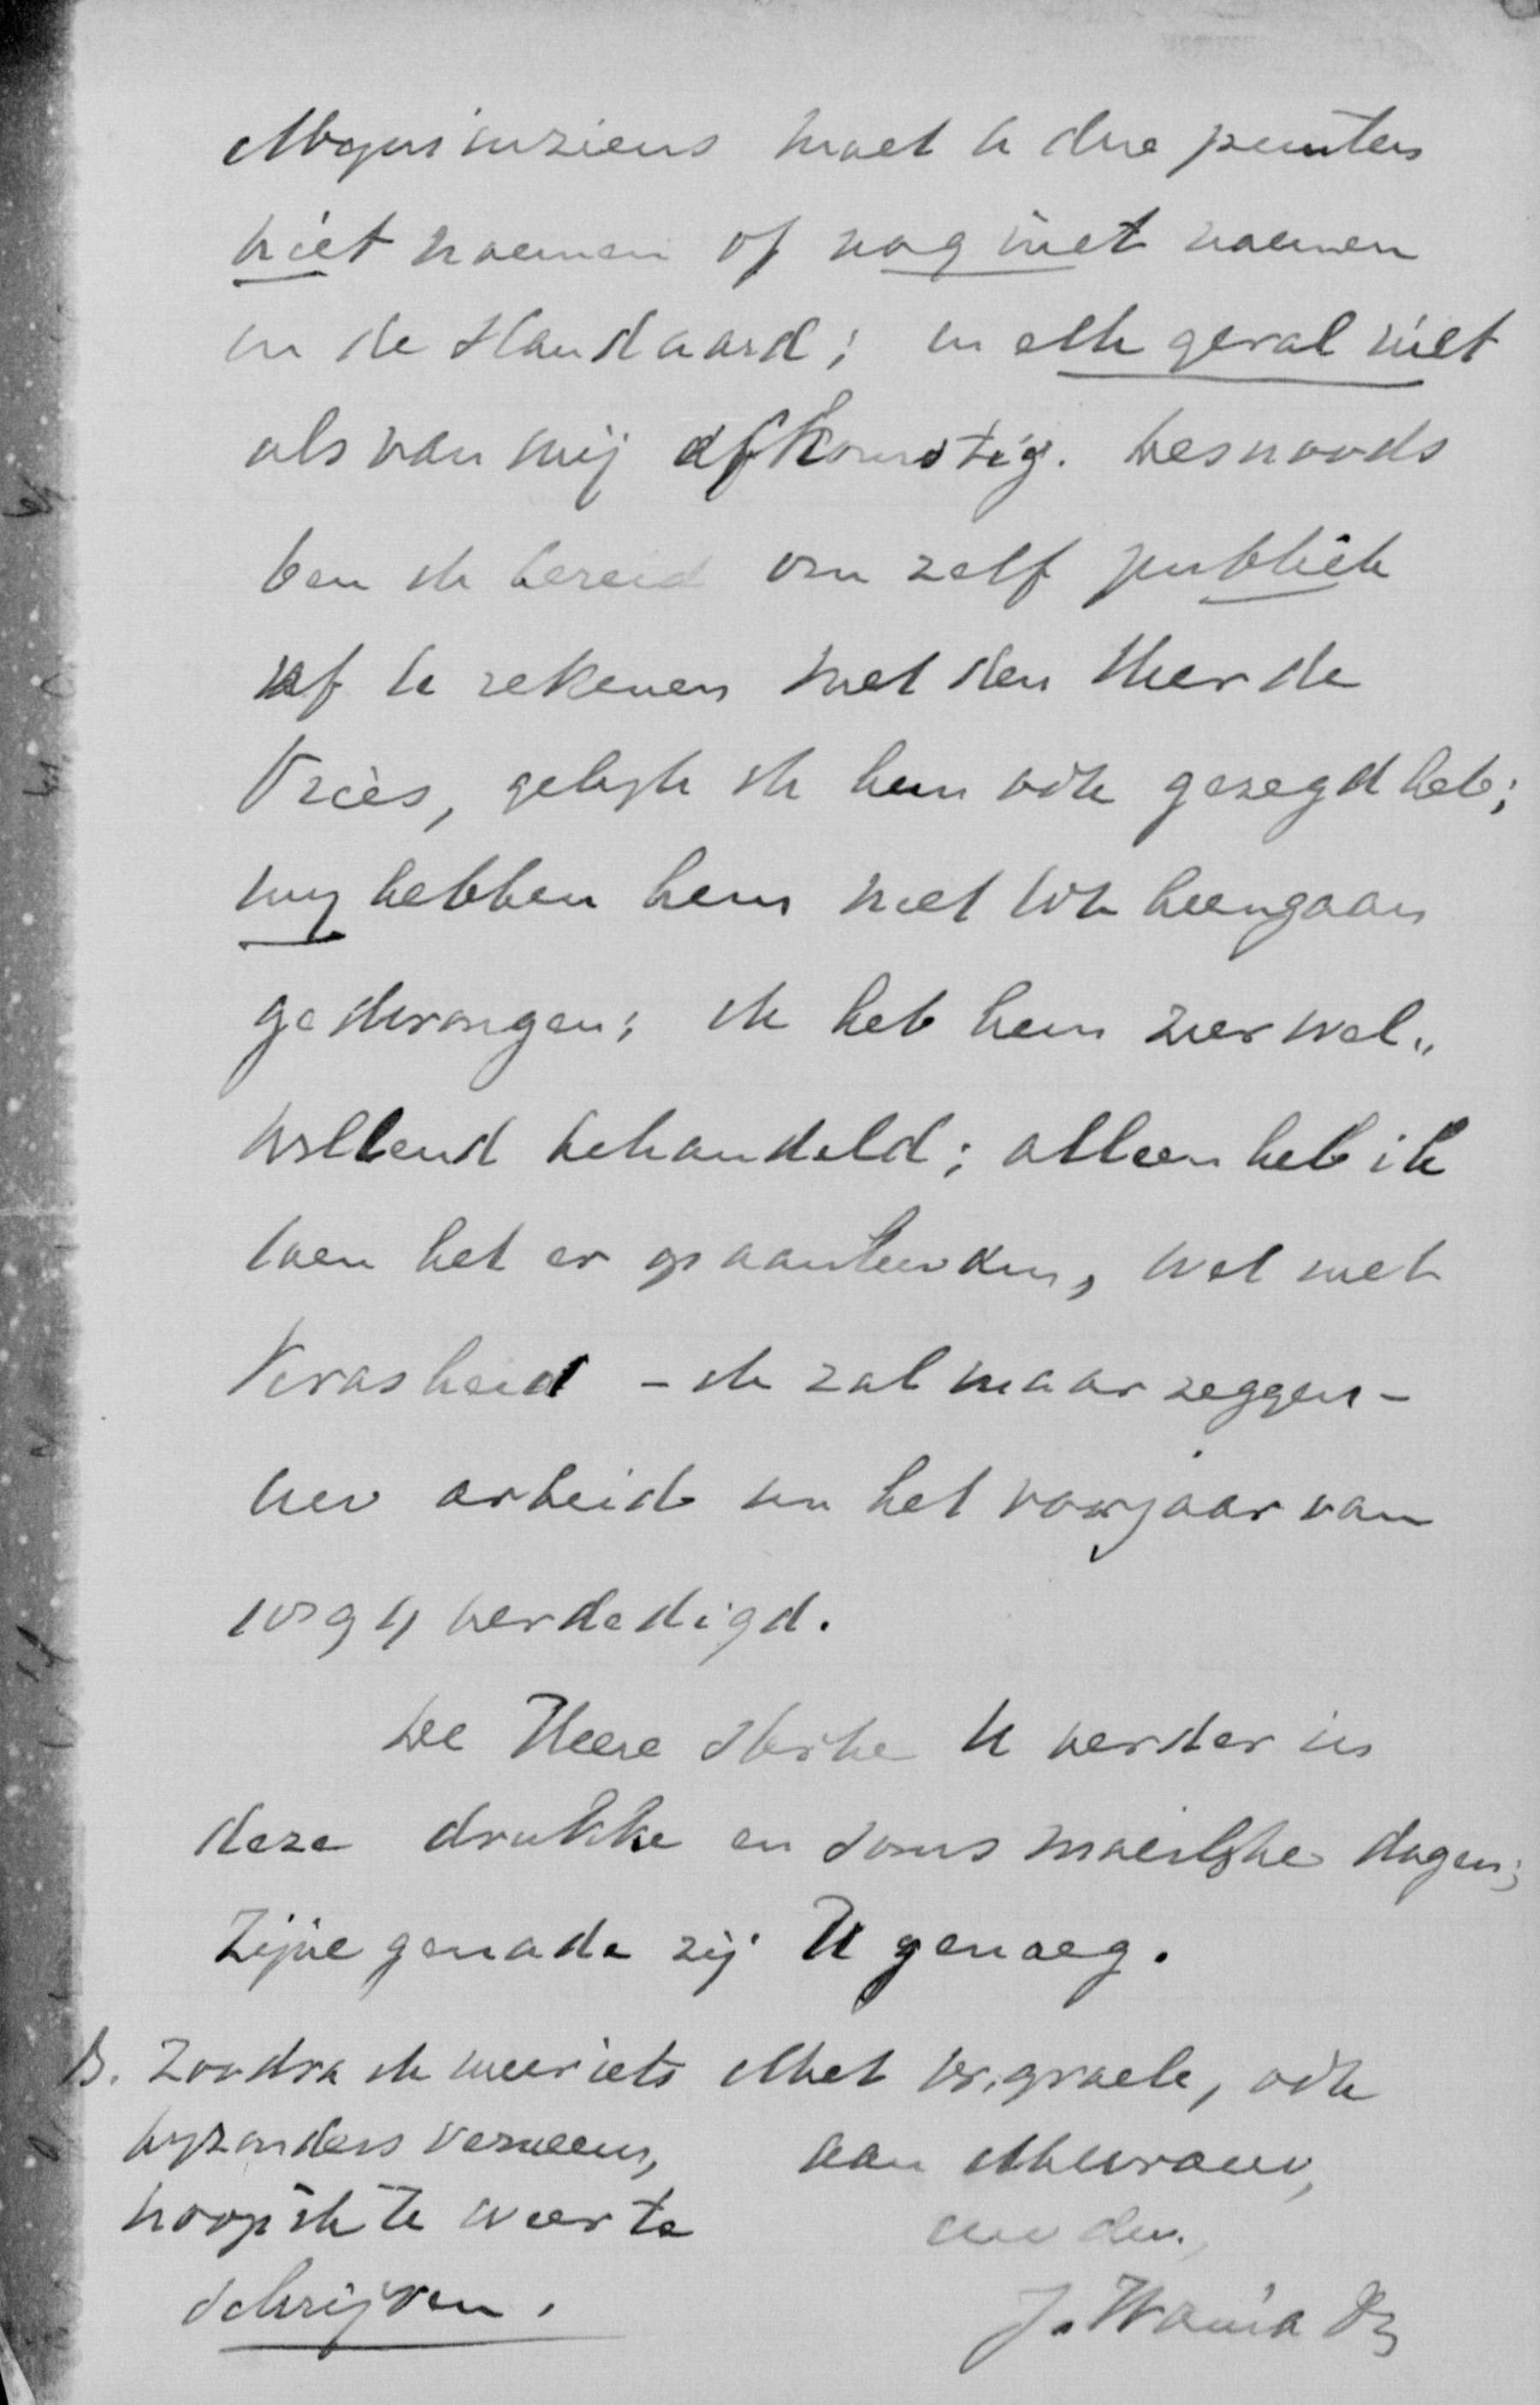 Mijns inziens moet U die punten
niet noemen of nog niet noemen
in de Standaard; in elk geval niet
als van mij afkomstig. Desnoods
ben ik bereid om zelf publiek
af te rekenen met den Heer de
Vries, gelijk ik hem ook gezegd heb;
wij hebben hem niet tot heengaan
gedwongen; ik heb hem zeer wel„
willend behandeld; alleen heb ik
toen het er op aankwam, wel met
krasheid - ik zal maar zeggen -
uw arbeid in het voorjaar van
1894 verdedigd.
De Heere sterke U verder in
deze drukke en soms moeilijke dagen;
Zijne genade zij U genoeg.
Met br. groete, ook
aan Mevrouw,
uw dw.,
J. Wania Dz
B. Zoodra ik weer iets
byzonders verneem,
hoop ik U weer te
schrijven.